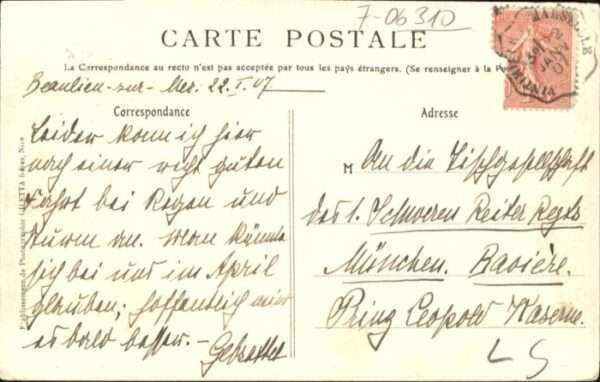 7-06310
CARTE POSTALE
La Correspondance au recto n'est pas acceptée par tous les pays étrangers. (Se renseigner à la Poste
Beaulieu-sur-Mer. 22.I.07
Correspondance
Leider kam ich hier
nach einer recht guten
Fahrt bei Regen und
Sturm an. Man könnte
sich bei uns im April
glauben; hoffentlich wird
es bald besser. –
Adresse
M An die Tischgesellschaft
des 1. Schweren Reiter Regts
München. Bavière.
Prinz Leopold Kaserne.
LS
Etablissement de Photographie GILETTA frères, Nice